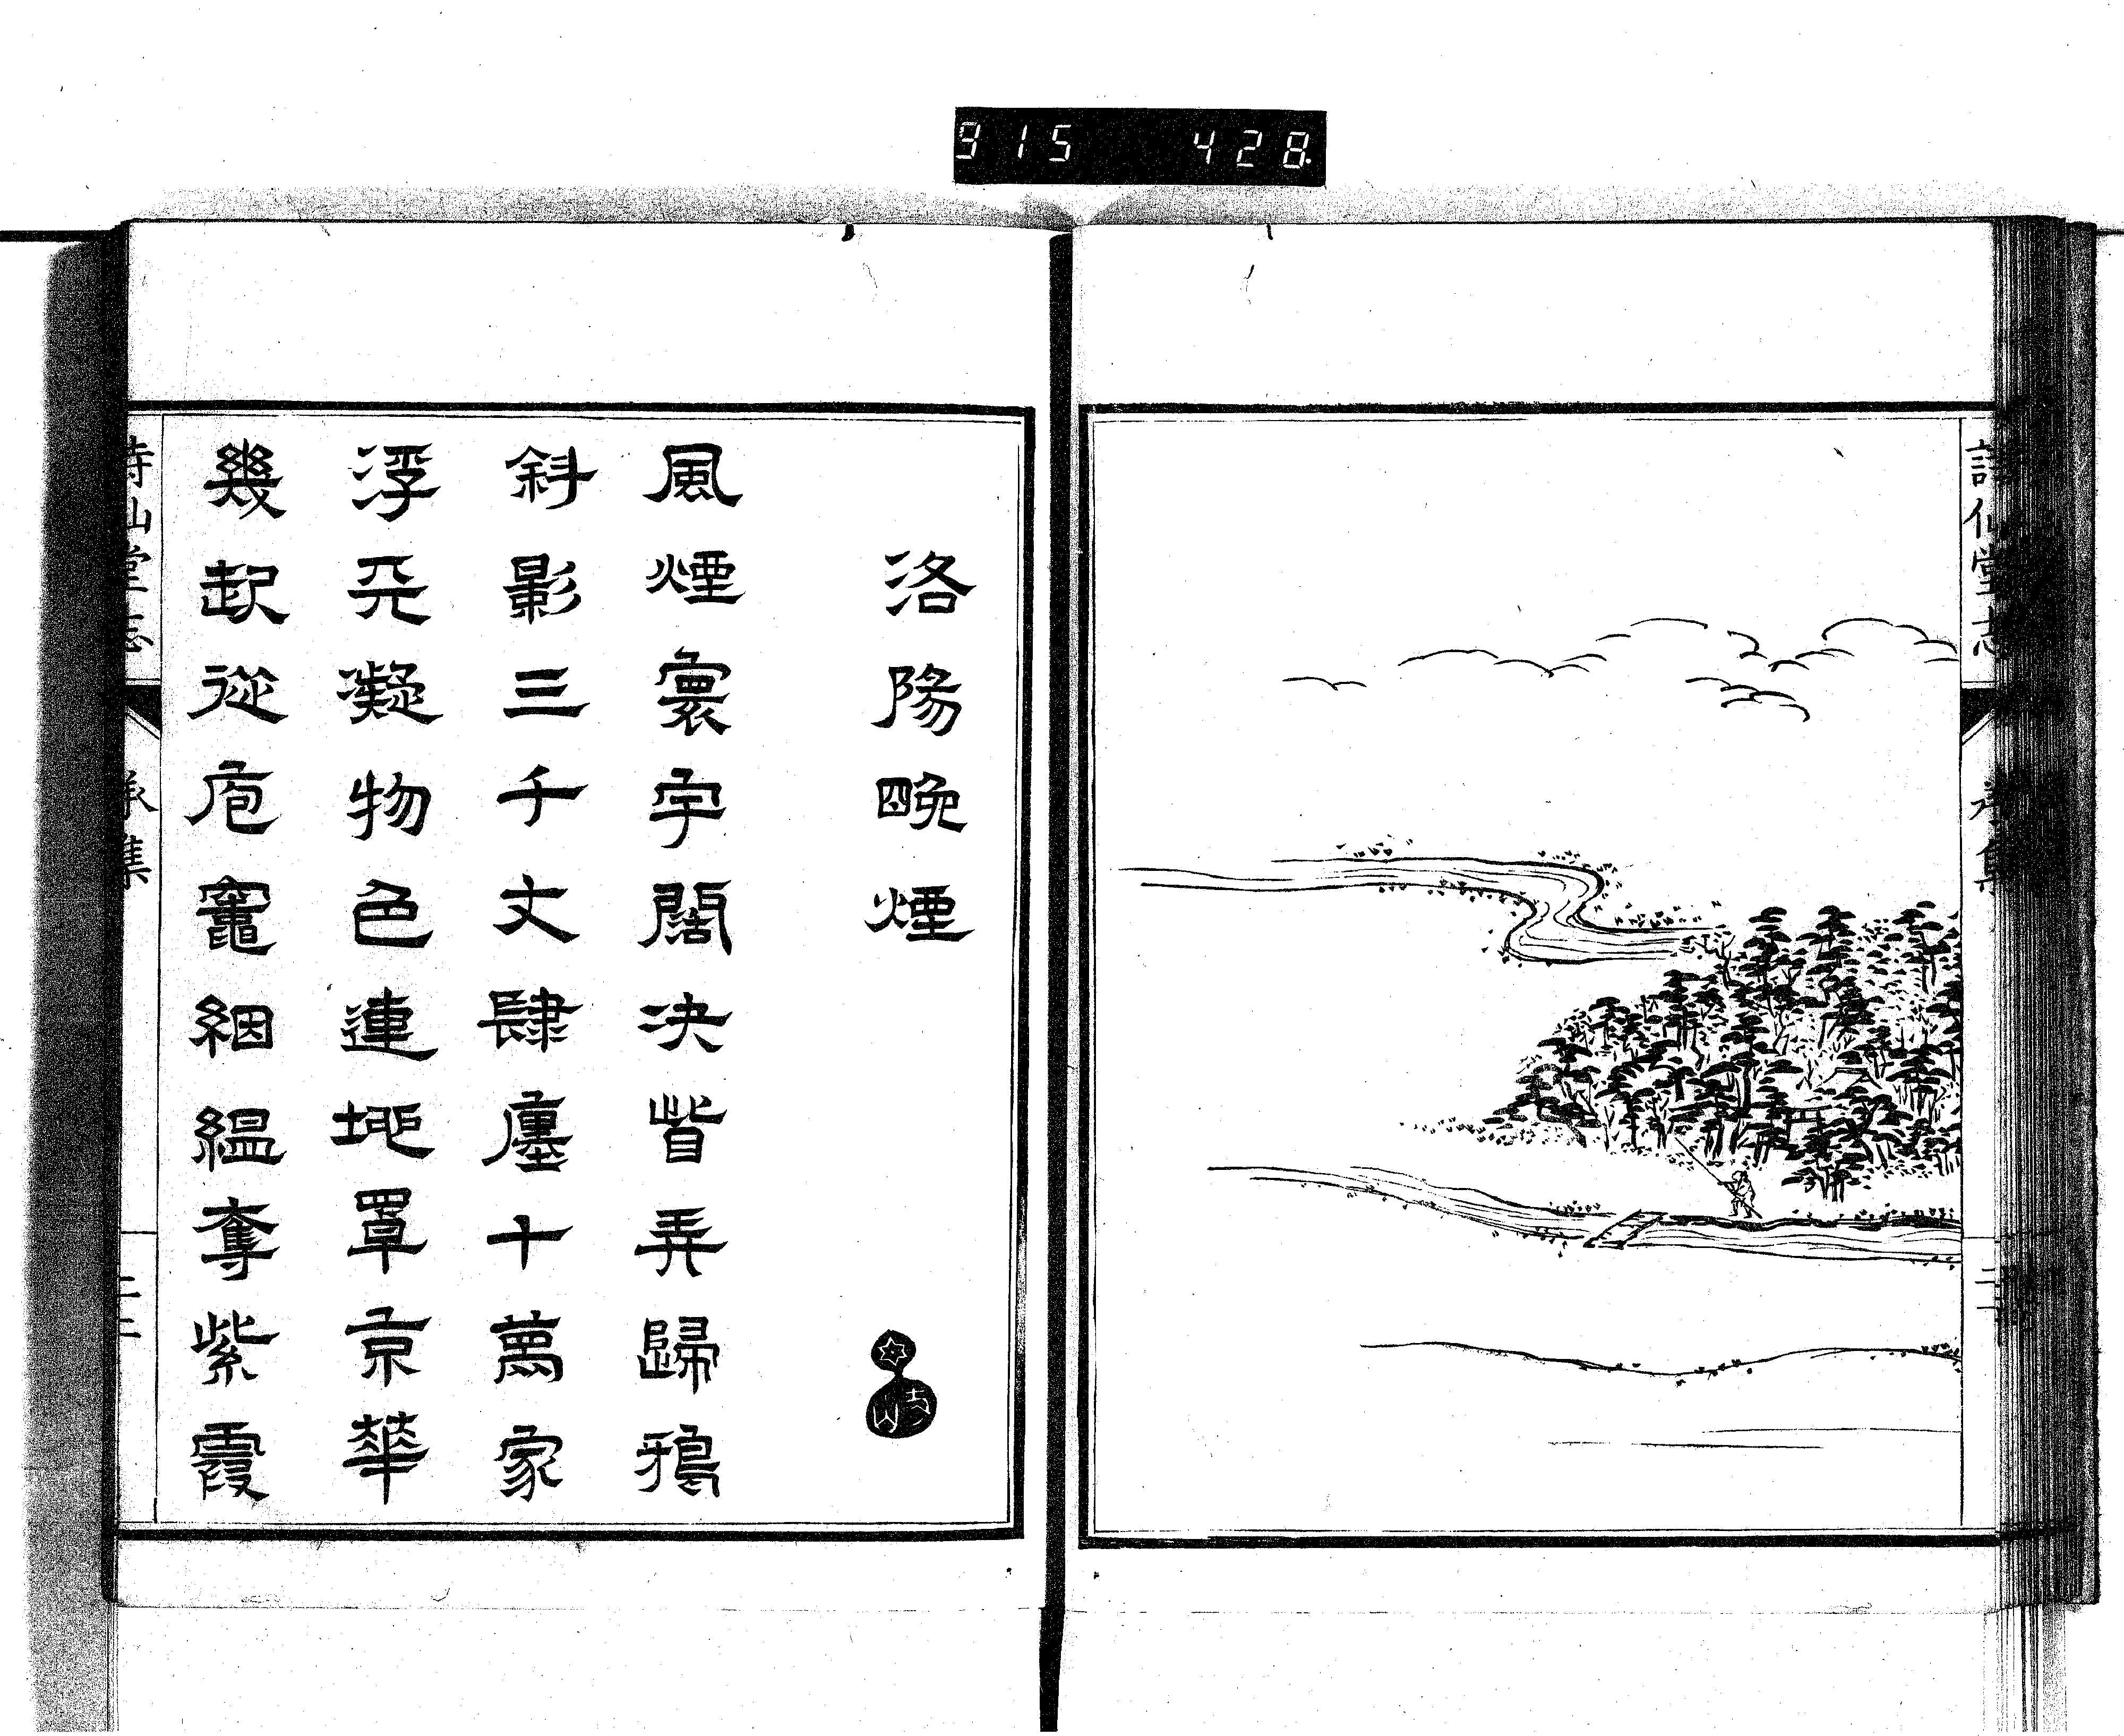 915 428
詩仙堂志 承集
洛陽晚煙
風煙寰宇闊决眥弄歸鴉
斜影三千丈肆廛十萬家
浮天凝物色連地罩京華
幾起從庖竈絪縕奪紫霞
詩仙堂志 承集